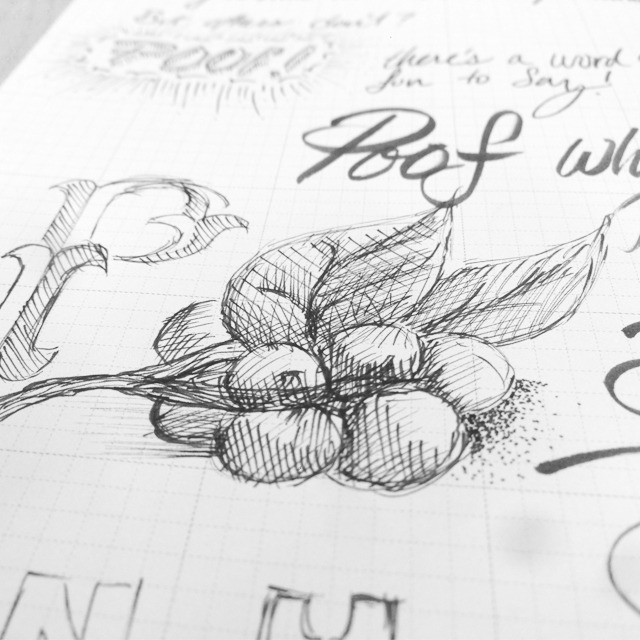 But when don't?
POOF!
there's a word
fun to say!
Poof wh
P
N E